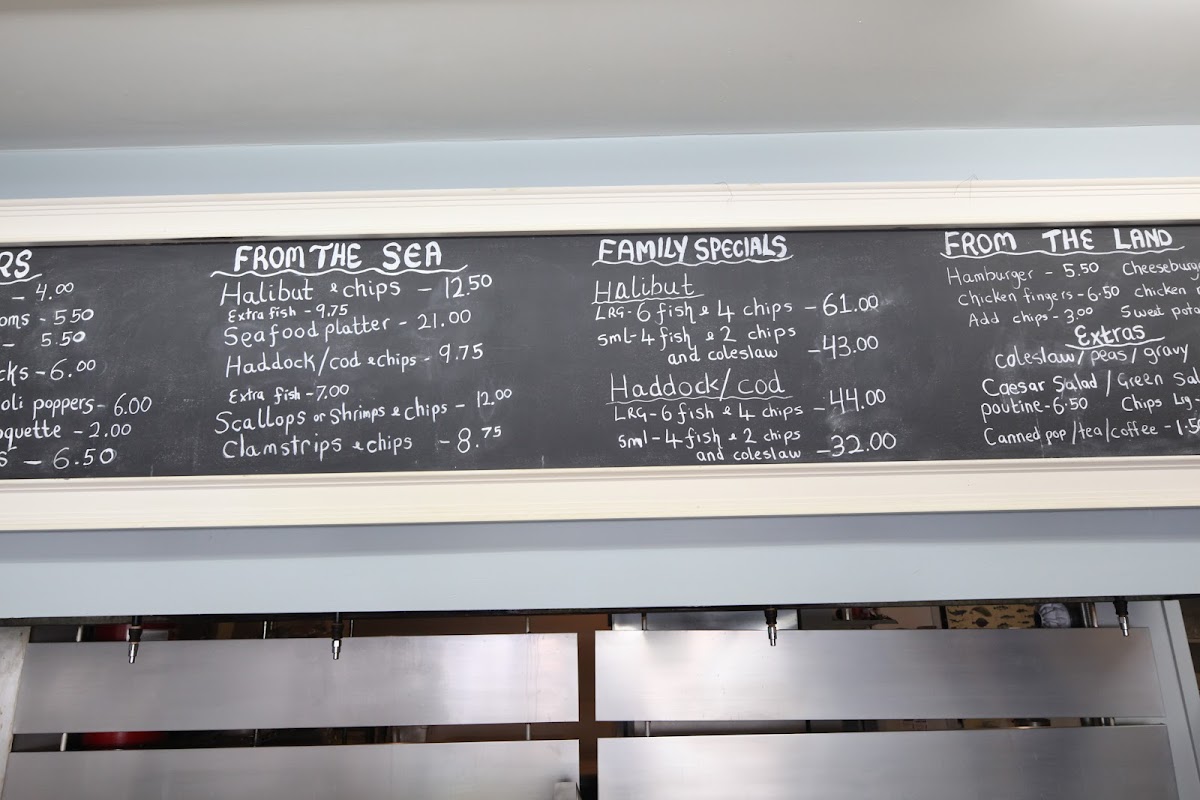 RS
- 4.00
oms - 5.50
- 5.50
cks - 6.00
oli poppers - 6.00
oquette - 2.00
s - 6.50
FROM THE SEA
Halibut & chips - 12.50
Extra fish - 9.75
Seafood platter - 21.00
Haddock/cod & chips - 9.75
Extra fish - 7.00
Scallops or Shrimps & chips - 12.00
Clamstrips & chips - 8.75
FAMILY SPECIALS
Halibut
LRG - 6 fish & 4 chips - 61.00
sml - 4 fish & 2 chips
and coleslaw - 43.00
Haddock/cod
LRG - 6 fish & 4 chips - 44.00
sml - 4 fish & 2 chips
and coleslaw - 32.00
FROM THE LAND
Hamburger - 5.50 Cheeseburge
chicken fingers - 6.50 chicken
Add chips - 3.00 Sweet pota
Extras
coleslaw/peas/gravy
Caesar Salad / Green Sal
poutine - 6.50 Chips lg -
Canned pop/tea/coffee - 1.50